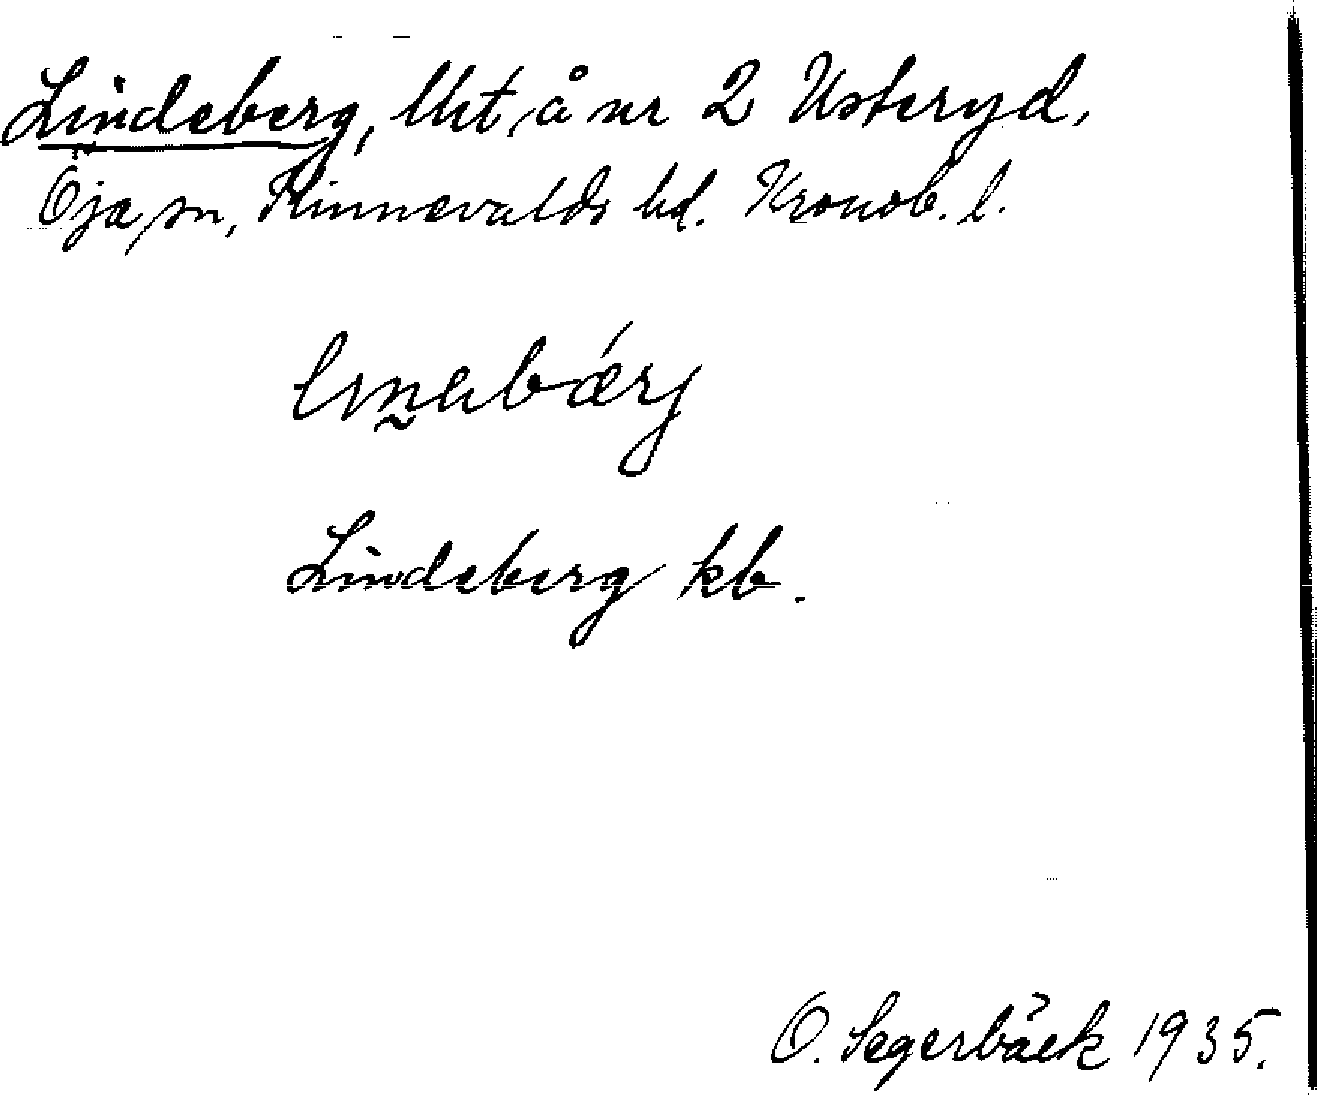 Lindeberg, lht, å nr 2 Usteryd,
Öja sn, Kinnevalds hd. Kronob. l.
Lindeberg kb.
O. Segerbäck 1935.